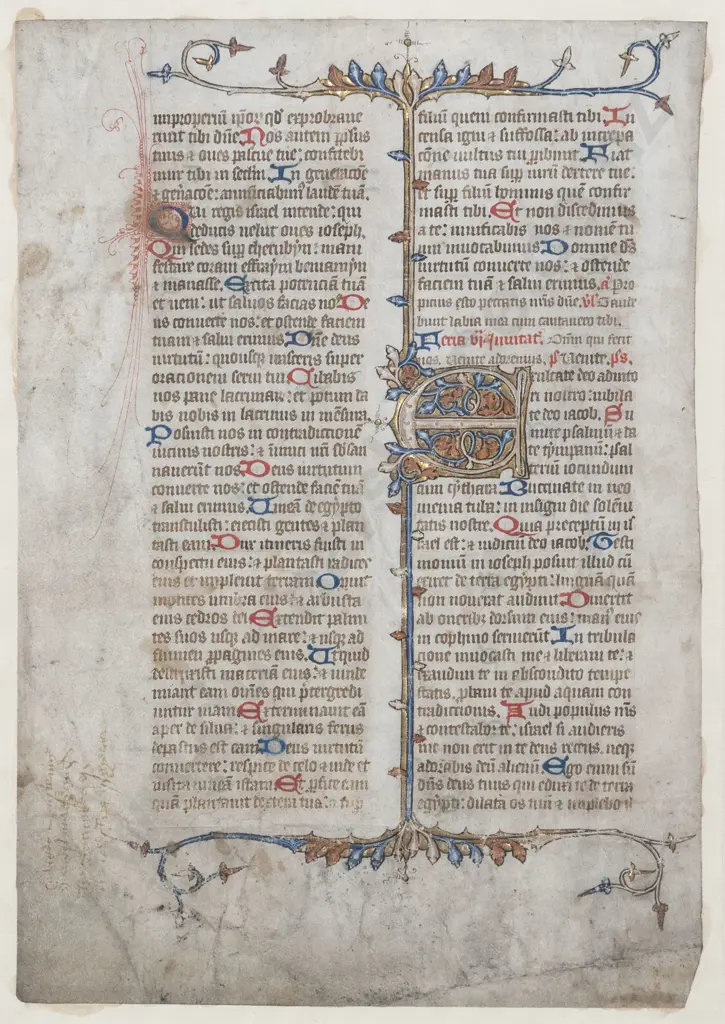 improperiū ip̄oꝝ qd̄ exprobrave
runt tibi dn̄e Nos autem ppl̄us
tuus ⁊ oves pascue tue: confitebi
mur tibi in sc̄lm̄. In generacōe
⁊ gen̄acōe: annūciabim᷒ laudē tuā.
Qui regis israel intende: qui
deducis velut oves ioseph.
Qui sedes sup̱ cherubyn: mani
festare coram effraym beniamyn
⁊ manasse. Excita potenciā tuā
et veni: ut salvos facias nos De
us converte nos: et ostende faciem
tuam ⁊ salvi erimus. Dn̄e deus
virtutū: quousqꝫ irasceris super
orationem servi tui Cibabis
nos pane lacrimaꝝ: et potum da
bis nobis in lacrimis in mēsura
Posuisti nos in contradictionē
vicinis nostris: ⁊ inimici nr̄i sb̄san
naverūt nos. Deus virtutum
converte nos: et ostende faciē tuā
⁊ salvi erimus. Vineā de egypto
transtulisti: eiecisti gentes ⁊ plan
tasti eam. Dux itineris fuisti in
conspectu eius: ⁊ plantasti radices
eius et implevit terram Opuit
montes umbra eius: ⁊ arbusta
eius cedros dei Extendit palmi
tes suos usqꝫ ad mare: ⁊ usqꝫ ad
flumen ꝓpagines eius. Ut quid
destruxisti maceriā eius: ⁊ vinde
miant eam om̄es qui p̄tergredi
untur viam Exterminavit eā
aper de silva: ⁊ singularis ferus
depastus est eam Deus virtutū
convertere: respice de celo ⁊ vide et
visita vineā istam Et p̱fice eam
quā plantavit dextera tua: ⁊ sup̱
filiū quem confirmasti tibi In
censa igni ⁊ suffossa: ab increpa
cōne vultus tui p̱ibunt Fiat
manus tua sup̱ virū dextere tue:
et sup̱ filiū hominis quē confir
masti tibi. Et non discedimus
a te: vivificabis nos ⁊ nomē tu
um invocabimus Domine ds̄
virtutū converte nos: ⁊ ostende
faciem tuā ⁊ salvi erimus. a Pro
picius esto peccatis nr̄is dn̄e. v̄s̄ Gaude
bunt labia mea cum cantavero tibi.
Feria vj. invitat. Dn̄m qui fecit
nos. venite adoremus. ps Venite. ps.
Exultate deo adiuto
ri nostro: iubila
te deo iacob. Su
mite psalmū ⁊ da
te tympanū: psal
teriū iocundum
cum cythara Buccinate in neo
menia tuba: in insigni die solēni
tatis nostre. Quia preceptū in is
rael est: ⁊ iudiciū deo iacob. Testi
monium in ioseph posuit illud cū
exiret de terra egypti: linguā quā
non noverat audivit Divertit
ab onerib᷒ dorsum eius: man᷒ eius
in cophino servierūt. In tribula
cione invocasti me ⁊ liberavi te: ⁊
exaudivi te in abscondito tempe
statis. ꝓbavi te apud aquam con
tradictionis. Audi populus m̄s
⁊ contestabor te: israel si audieris
me non erit in te deus recens. neqꝫ
adorabis deū alienū. Ego enim sū
dn̄s deus tuus qui eduxi te de terra
egypti: dilata os tuū ⁊ implebo il